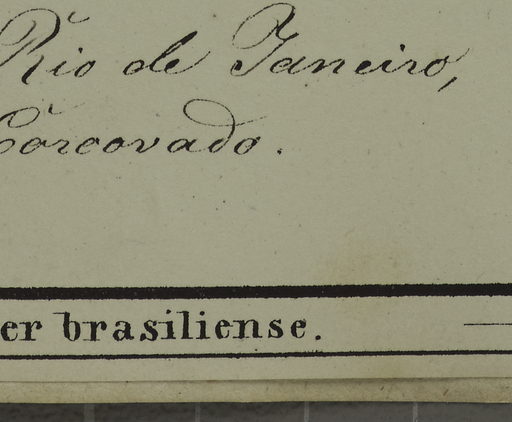 Rio de Janeiro,
Corcovado.
er brasiliense.